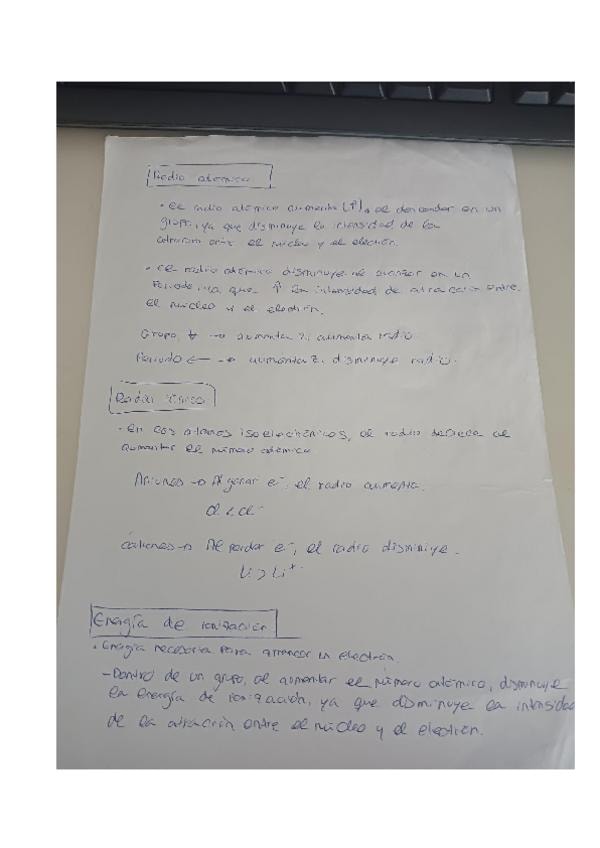 Radio atómico
• El radio atómico aumenta (↑) al descender en un
grupo, ya que disminuye la intensidad de la
atracción entre el núcleo y el electrón.
• El radio atómico disminuye al avanzar en un
Periodo, ya que ↑ la intensidad de atracción entre
el núcleo y el electrón.
Grupo ↓ → aumenta Z, aumenta radio
Periodo ← → aumenta Z, disminuye radio.
Radio iónico
• En los átomos isoelectrónicos, el radio decrece al
aumentar el número atómico
Aniones → Al ganar e⁻, el radio aumenta.
Cl < Cl⁻
Cationes → Al perder e⁻, el radio disminuye.
Li > Li⁺
Energía de ionización
• Energía necesaria para arrancar un electrón.
- Dentro de un grupo, al aumentar el número atómico, disminuye
la energía de ionización, ya que disminuye la intensidad
de la atracción entre el núcleo y el electrón.